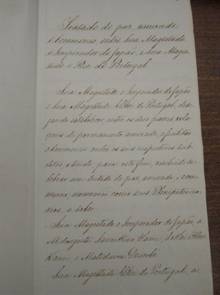 Tratado de paz amizade
e commercio, entre Sua Magestade
o Imperador do Japão, e Sua Mages
tade o Rei de Portugal.
Sua Magestade o Imperador do Japão
e Sua Magestade El Rei de Portugal,
entre os dois paizes rela
ções de permanente amizade, e facilitar
o commercio entre os seus respectivos sub
ditos, e tendo, para este fim, resolvido ce
lebrar um tratado de paz, amizade, e com
mercio, nomearam como seus Plenipotencia
rios, a saber:
Sua Magestade o Imperador do Japão, a
e Matsudaira
Sua Magestade El Rei de Portugal, a